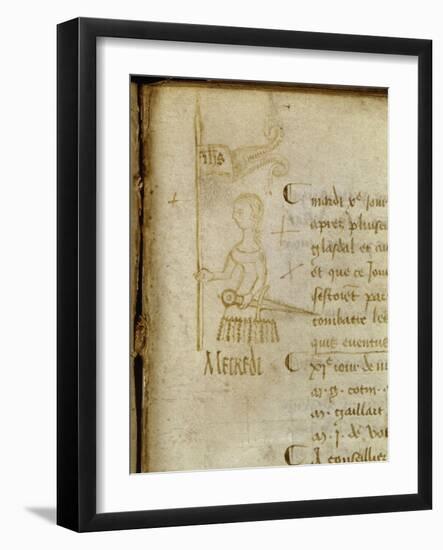 ihs
mardi xe jour
apres pluise
glasdal et au
et que ce Jour
sestoient par
combatre les
quis eventus
xie iour de m
m. g. cotin
m. gaillart
m. J. de
A conseillier
MECREDI